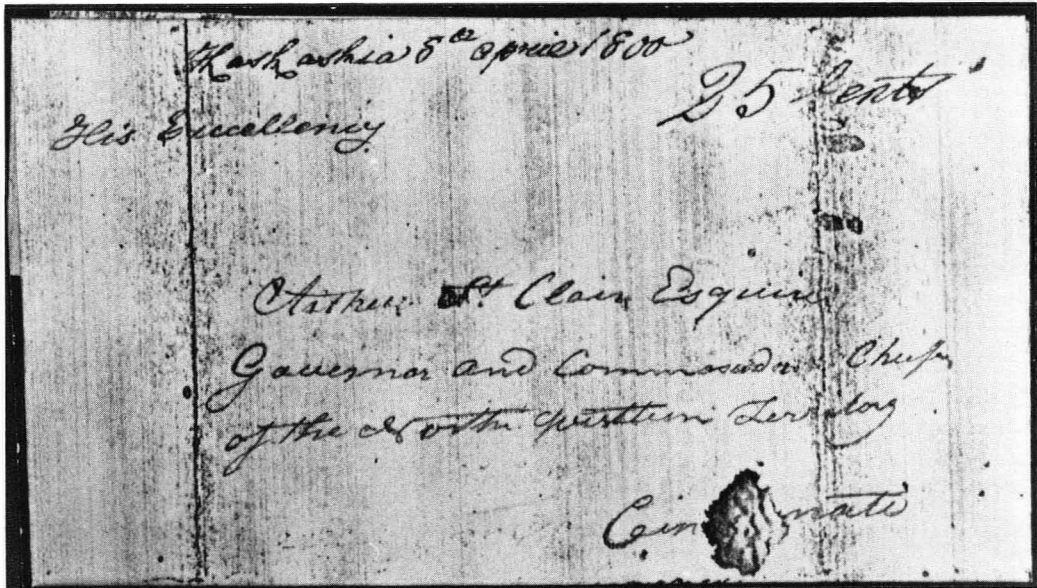 Kaskaskia 8th april 1800
25 Cents
His Excellency
Arthur St Clair Esquire
Governor and Commander Chief
of the North Western Territory
Cin nati